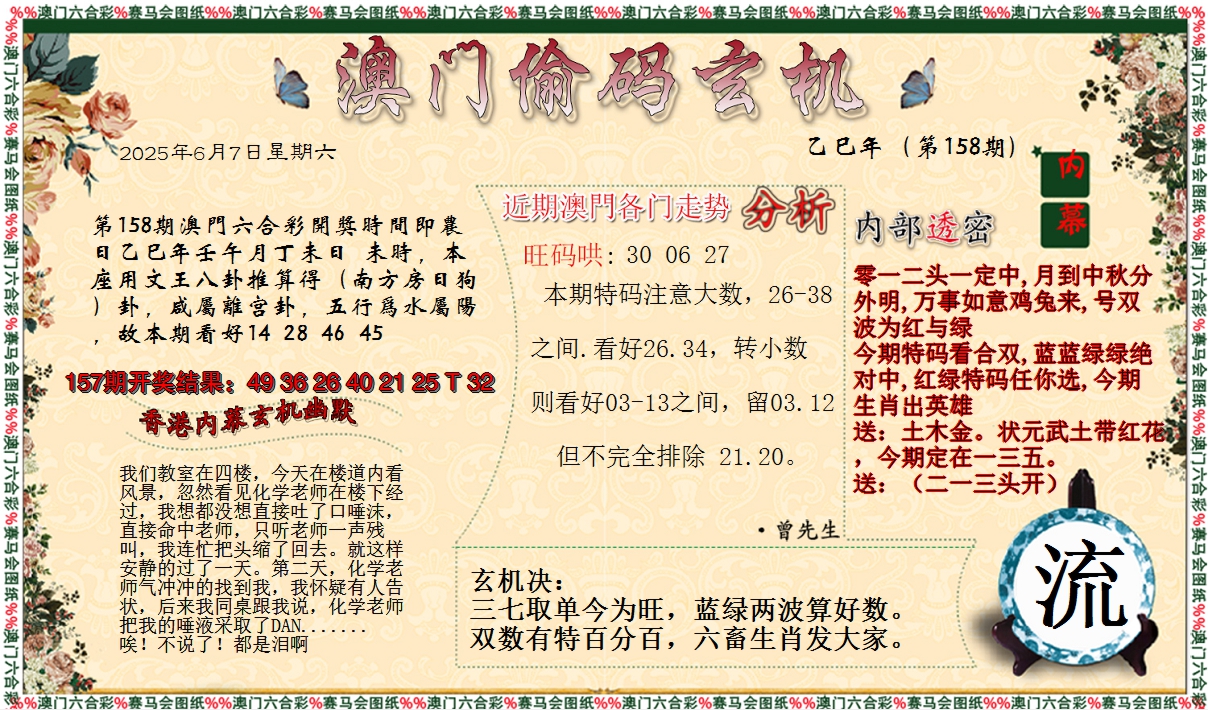 %%澳门六合彩%赛马会图纸%%澳门六合彩%赛马会图纸%%澳门六合彩%赛马会图纸%%澳门六合彩%赛马会图纸%%澳门六合彩%赛马会图纸%%澳门六合彩%赛马会图纸%%
澳门偷码玄机
2025年6月7日星期六
乙巳年（第158期）
内
幕
第158期澳門六合彩開獎時間即農
日乙巳年壬午月丁未日 未時，本
座用文王八卦推算得（南方房日狗
）卦，咸屬離宫卦，五行爲水屬陽
，故本期看好14 28 46 45
157期开奖结果：49 36 26 40 21 25 T 32
香港内幕玄机幽默
我们教室在四楼，今天在楼道内看
风景，忽然看见化学老师在楼下经
过，我想都没想直接吐了口唾沫，
直接命中老师，只听老师一声残
叫，我连忙把头缩了回去。就这样
安静的过了一天。第二天，化学老
师气冲冲的找到我，我怀疑有人告
状，后来我同桌跟我说，化学老师
把我的唾液采取了DAN.......
唉！不说了！都是泪啊
近期澳門各门走势 分析
旺码哄: 30 06 27
本期特码注意大数，26-38
之间.看好26.34，转小数
则看好03-13之间，留03.12
但不完全排除 21.20。
·曾先生
玄机决：
三七取单今为旺，蓝绿两波算好数。
双数有特百分百，六畜生肖发大家。
内部透密
零一二头一定中,月到中秋分
外明,万事如意鸡兔来,号双
波为红与绿
今期特码看合双,蓝蓝绿绿绝
对中,红绿特码任你选,今期
生肖出英雄
送：土木金。状元武士带红花
，今期定在一三五。
送：（二一三头开）
流
%%澳门六合彩%赛马会图纸%%澳门六合彩%赛马会图纸%%澳门六合彩%赛马会图纸%%澳门六合彩%赛马会图纸%%澳门六合彩%赛马会图纸%%澳门六合彩%赛马会图纸%%